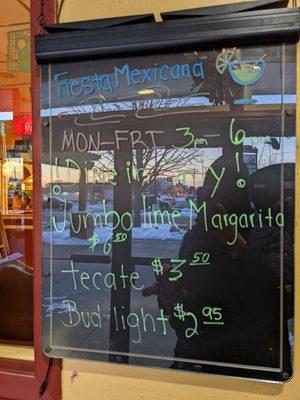 Fiesta Mexicana
MON-FRI 3pm-6pm
¡Dine in only!
Jumbo lime Margarita
$6.50
tecate $3.50
Bud light $2.95